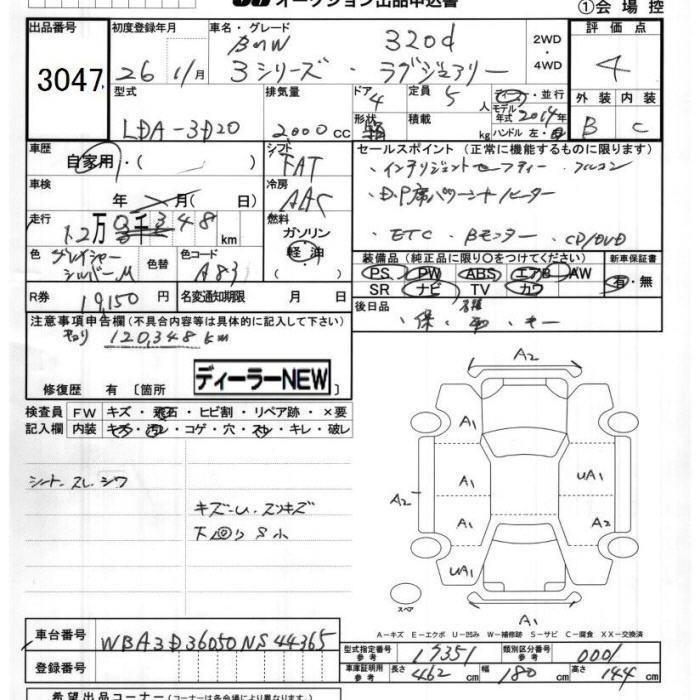 オークション出品申込書
①会場控
出品番号 初度登録年月 車名・グレード 評価点
3047 26年11月 BMW 320d 2WD・4WD 4
3シリーズ・ラグジュアリー
型式 排気量 ドア 4 定員 5人 ディーラー・並行 外装 内装
LDA-3D20 2000cc 形状 積載 kg モデル年式 2014年 B C
ハンドル 左・右
車歴 シフト セールスポイント (正常に機能するものに限ります)
自家用・( ) FAT ・インテリジェントセーフティー・フルコン
車検 冷房 ・D.P席パワーシート/ヒーター
年 月( 日) AAC ・ETC・Bモニター・CD/DVD
走行 燃料
12万 0千348km ガソリン 軽油
色 色替 色コード 装備品 (純正品に限り○をつけてください) 新車保証書
グレイシャーシルバーM A83 PS PW ABS エアB AW 有・無
SR ナビ TV カワ
R券 19,150円 名変通知期限 月 日 後日品
・保・記録・キー
注意事項申告欄 (不具合内容等は具体的に記入して下さい)
120,348km
修復歴 有 [箇所 ディーラーNEW
検査員 FW キズ・飛石・ヒビ割・リペア跡・×要
記入欄 内装 キズ・汚レ・コゲ・穴・スレ・キレ・破レ
シート スレ シワ
キズ・U・スリキズ
下回りS小
A2
A1
A1 UA1
A2
A1 A2
UA1
スペア
A2
A-キズ E-エクボ U-凹み W-補修跡 S-サビ C-腐食 XX-交換済
車台番号 WBA3D36050NS44365
登録番号
型式指定番号 参考 17351 類別区分番号 参考 0001
車庫証明用 参考 長さ 462cm 幅 180cm 高さ 144cm
希望出品コーナー (コーナーは各会場により異なります)